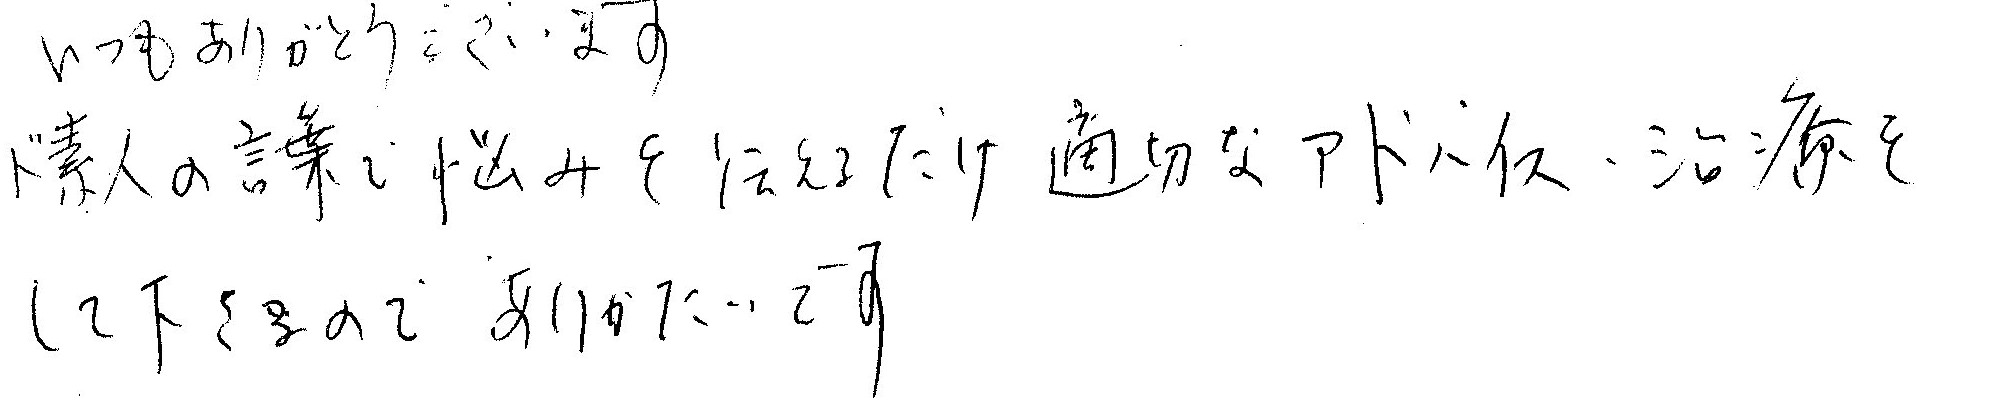 いつもありがとうございます
ド素人の言葉で悩みを伝えるだけ適切なアドバイス・治療を
して下さるので ありがたいです